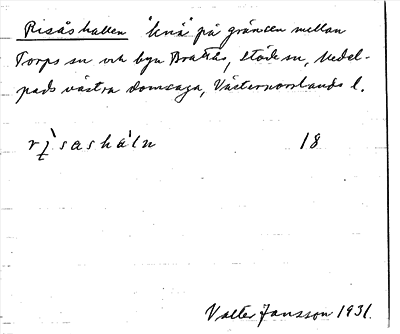 Risåshallen "knä" på gränsen mellan
Torps sn och byn Brattås, Stöde sn, Medel-
pads västra domsaga, Västernorrlands l.
rì̯sasháln 18
Valter Jansson 1931.